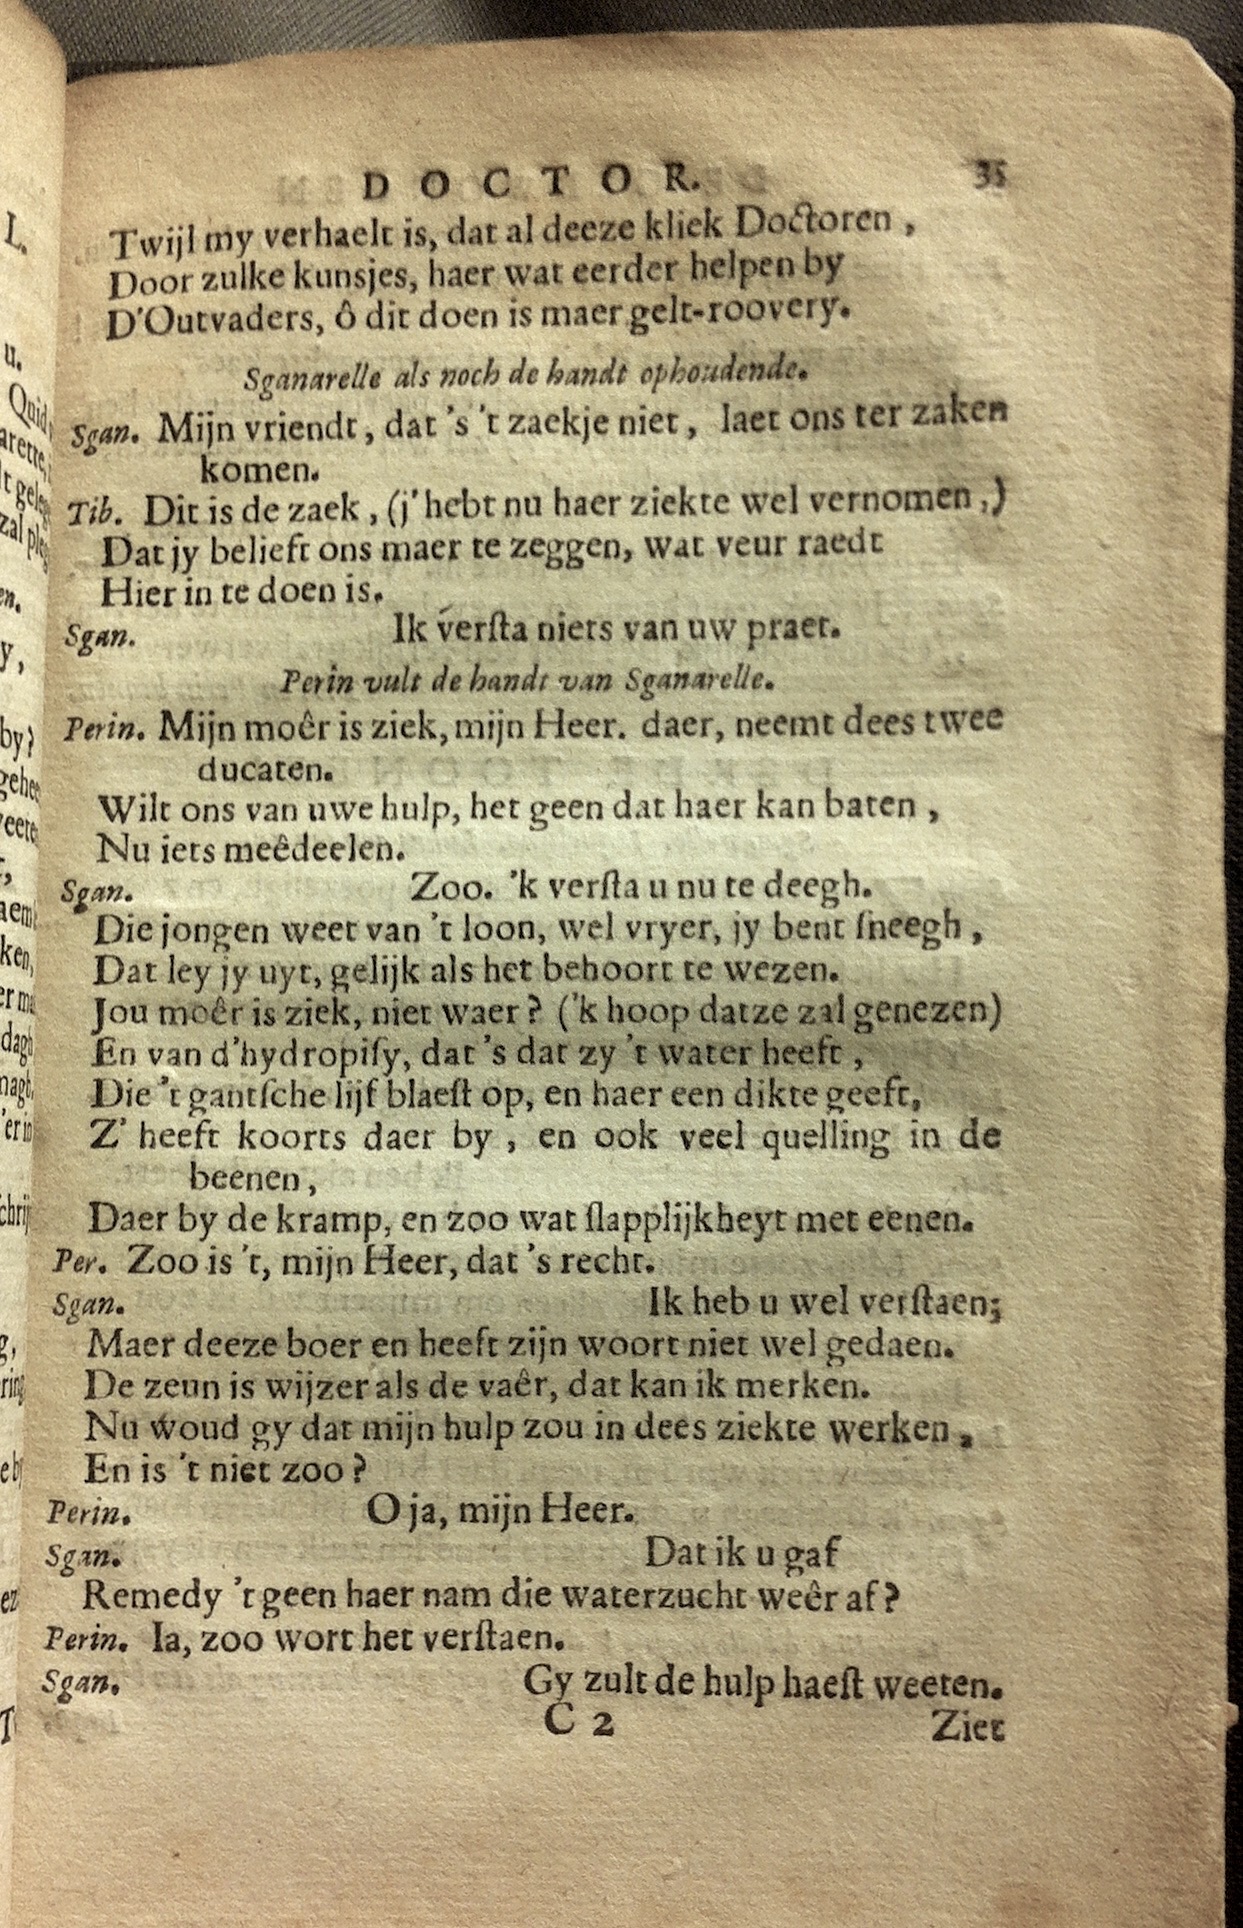 DOCTOR. 35
Twijl my verhaelt is, dat al deeze kliek Doctoren,
Door zulke kunsjes, haer wat eerder helpen by
D'Outvaders, ô dit doen is maer gelt-roovery.
Sganarelle als noch de handt ophoudende.
Sgan. Mijn vriendt, dat 's 't zaekje niet, laet ons ter zaken
komen.
Tib. Dit is de zaek, (j' hebt nu haer ziekte wel vernomen,)
Dat jy belieft ons maer te zeggen, wat veur raedt
Hier in te doen is.
Sgan. Ik verſta niets van uw praet.
Perin vult de handt van Sganarelle.
Perin. Mijn moêr is ziek, mijn Heer. daer, neemt dees twee
ducaten.
Wilt ons van uwe hulp, het geen dat haer kan baten,
Nu iets meêdeelen.
Sgan. Zoo. 'k verſta u nu te deegh.
Die jongen weet van 't loon, wel vryer, jy bent ſneegh,
Dat ley jy uyt, gelijk als het behoort te wezen.
Jou moêr is ziek, niet waer? ('k hoop datze zal genezen)
En van d'hydropiſy, dat 's dat zy 't water heeft,
Die 't gantſche lijf blaeſt op, en haer een dikte geeft,
Z' heeft koorts daer by, en ook veel quelling in de
beenen,
Daer by de kramp, en zoo wat ſlapplijkheyt met eenen.
Per. Zoo is 't, mijn Heer, dat 's recht.
Sgan. Ik heb u wel verſtaen;
Maer deeze boer en heeft zijn woort niet wel gedaen.
De zeun is wijzer als de vaêr, dat kan ik merken.
Nu woud gy dat mijn hulp zou in dees ziekte werken,
En is 't niet zoo?
Perin. O ja, mijn Heer.
Sgan. Dat ik u gaf
Remedy 't geen haer nam die waterzucht weêr af?
Perin. Ia, zoo wort het verſtaen.
Sgan. Gy zult de hulp haeſt weeten.
C 2 Ziet